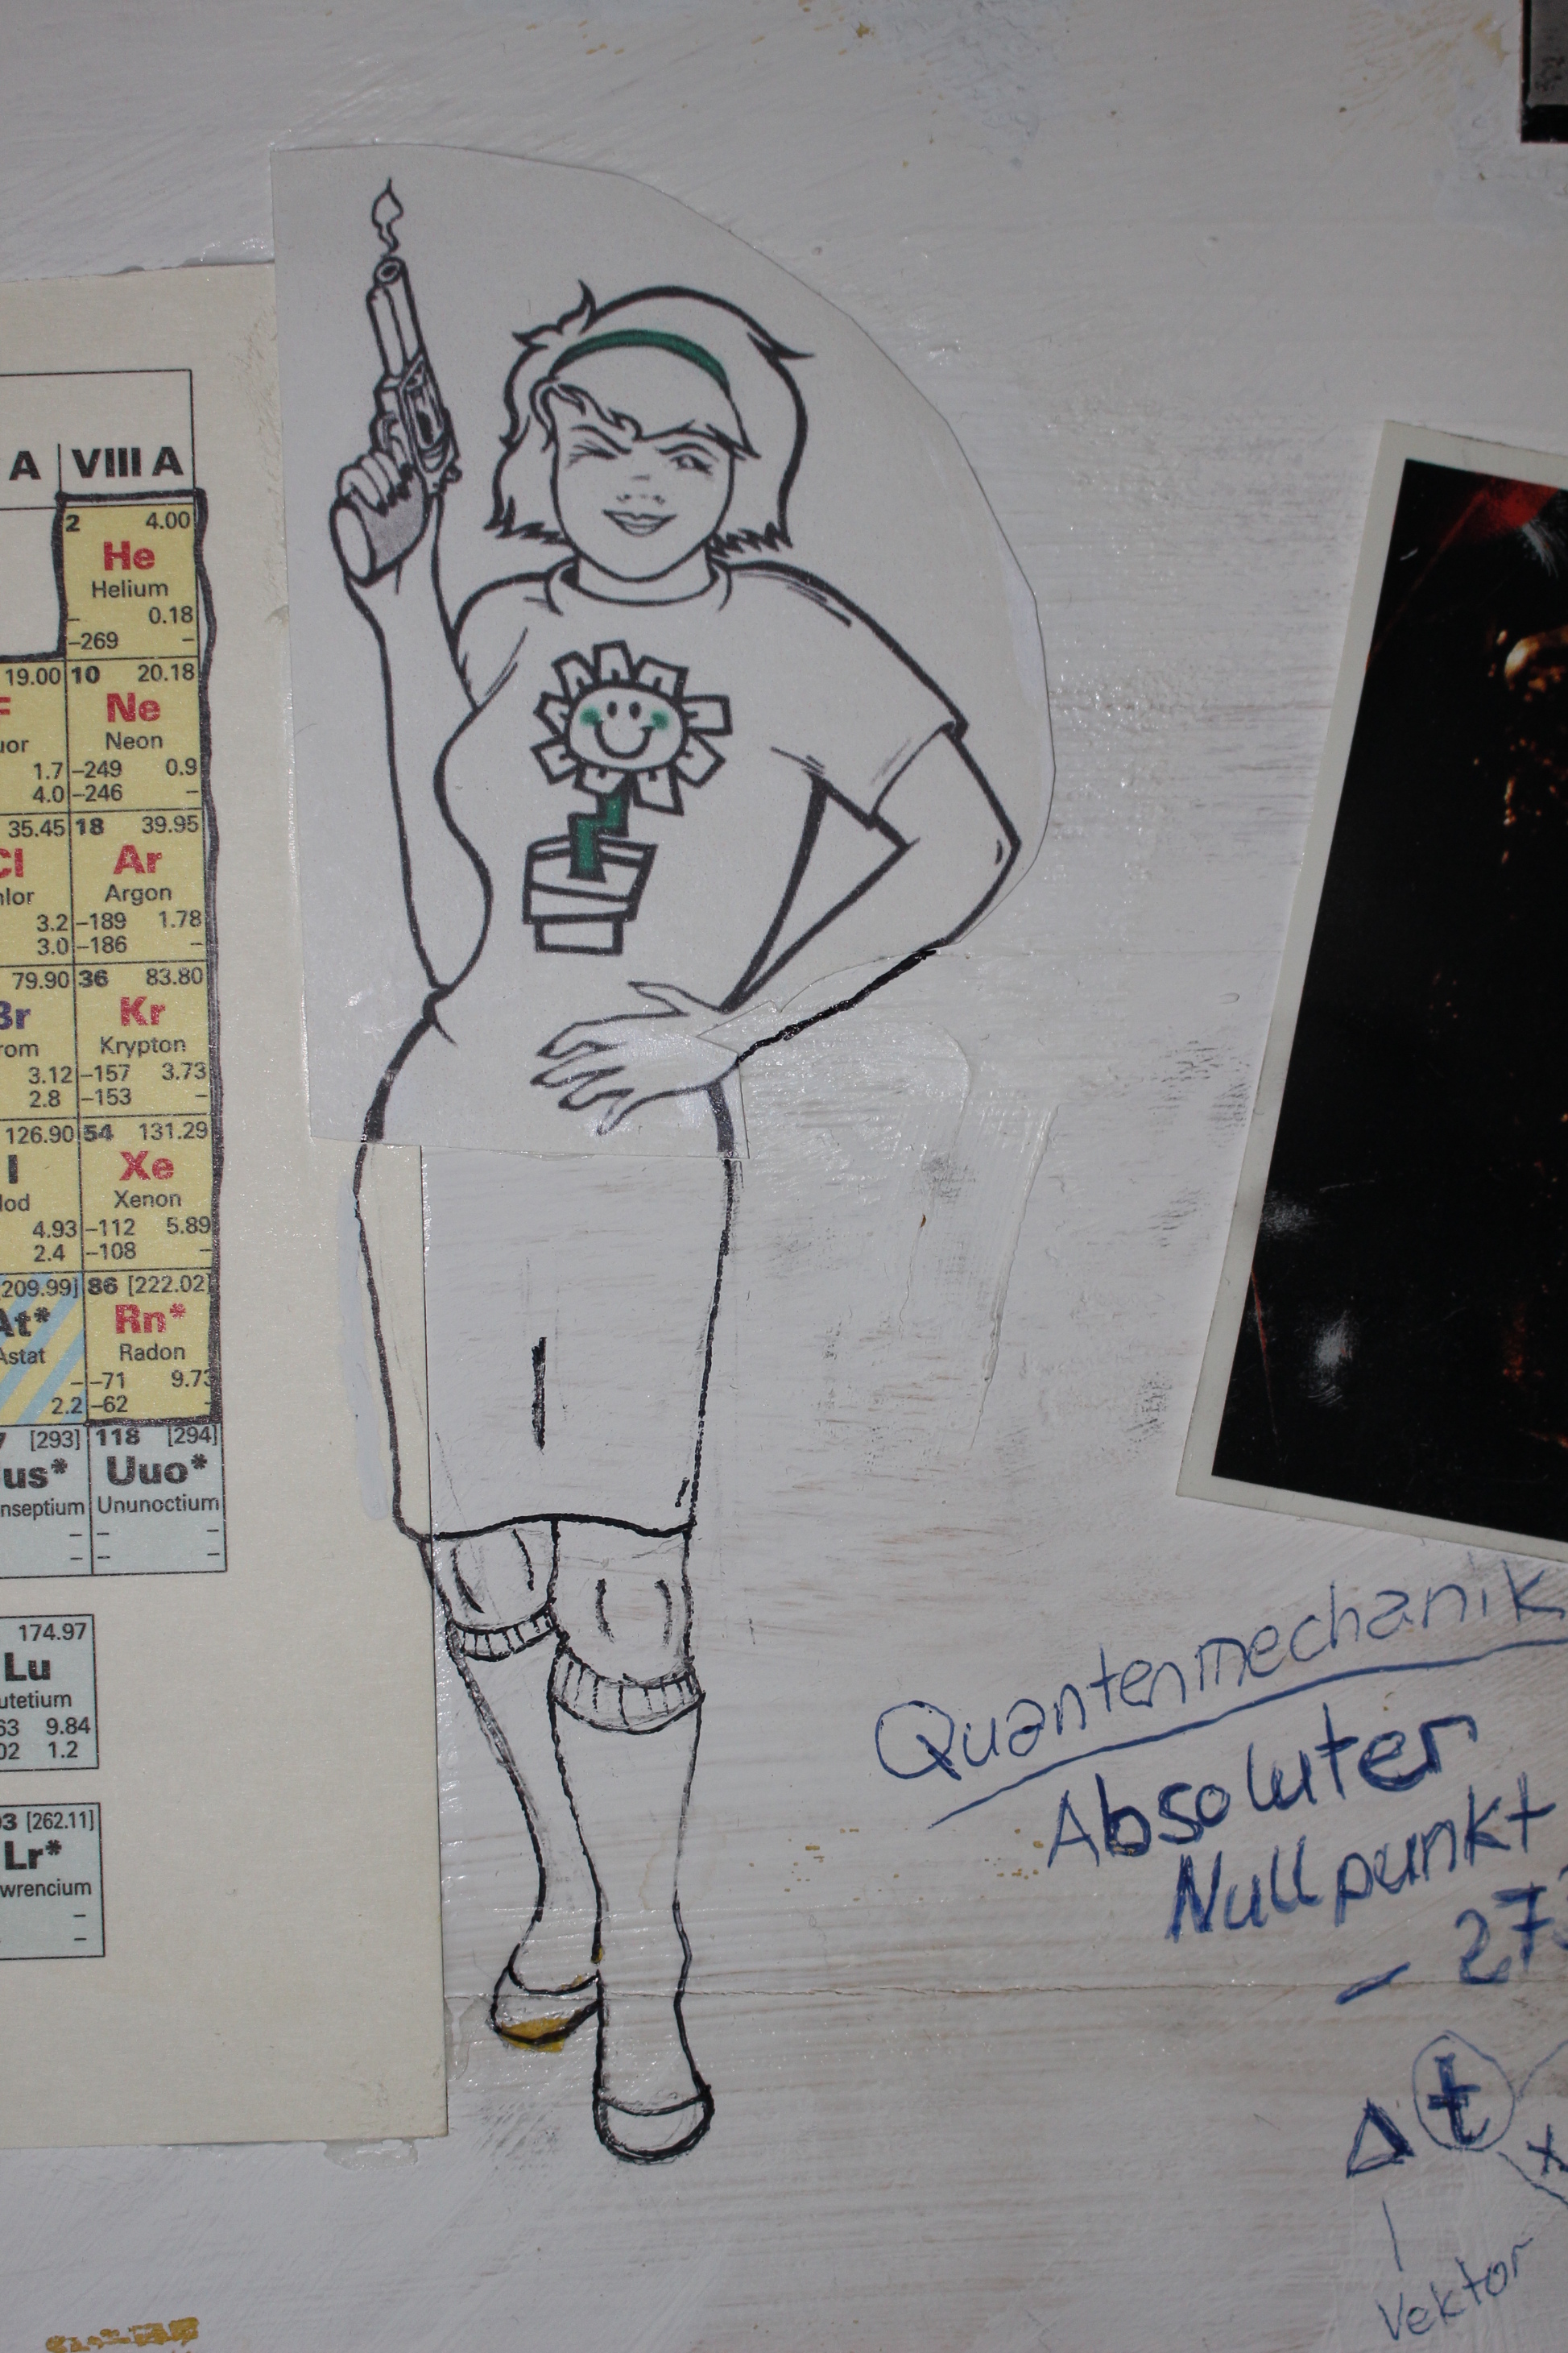 A VIII A
2 4.00
He
Helium
– 0.18
–269 –
19.00 10 20.18
F Ne
uor Neon
1.7 –249 0.9
4.0 –246 –
35.45 18 39.95
Cl Ar
hlor Argon
3.2 –189 1.78
3.0 –186 –
79.90 36 83.80
Br Kr
rom Krypton
3.12 –157 3.73
2.8 –153 –
126.90 54 131.29
I Xe
Iod Xenon
4.93 –112 5.89
2.4 –108 –
[209.99] 86 [222.02]
At* Rn*
Astat Radon
– –71 9.73
2.2 –62 –
7 [293] 118 [294]
us* Uuo*
nseptium Ununoctium
– – –
– – –
174.97
Lu
utetium
63 9.84
02 1.2
03 [262.11]
Lr*
wrencium
–
–
Quantenmechanik
Absoluter
Nullpunkt
– 273
Δ t x
Vektor